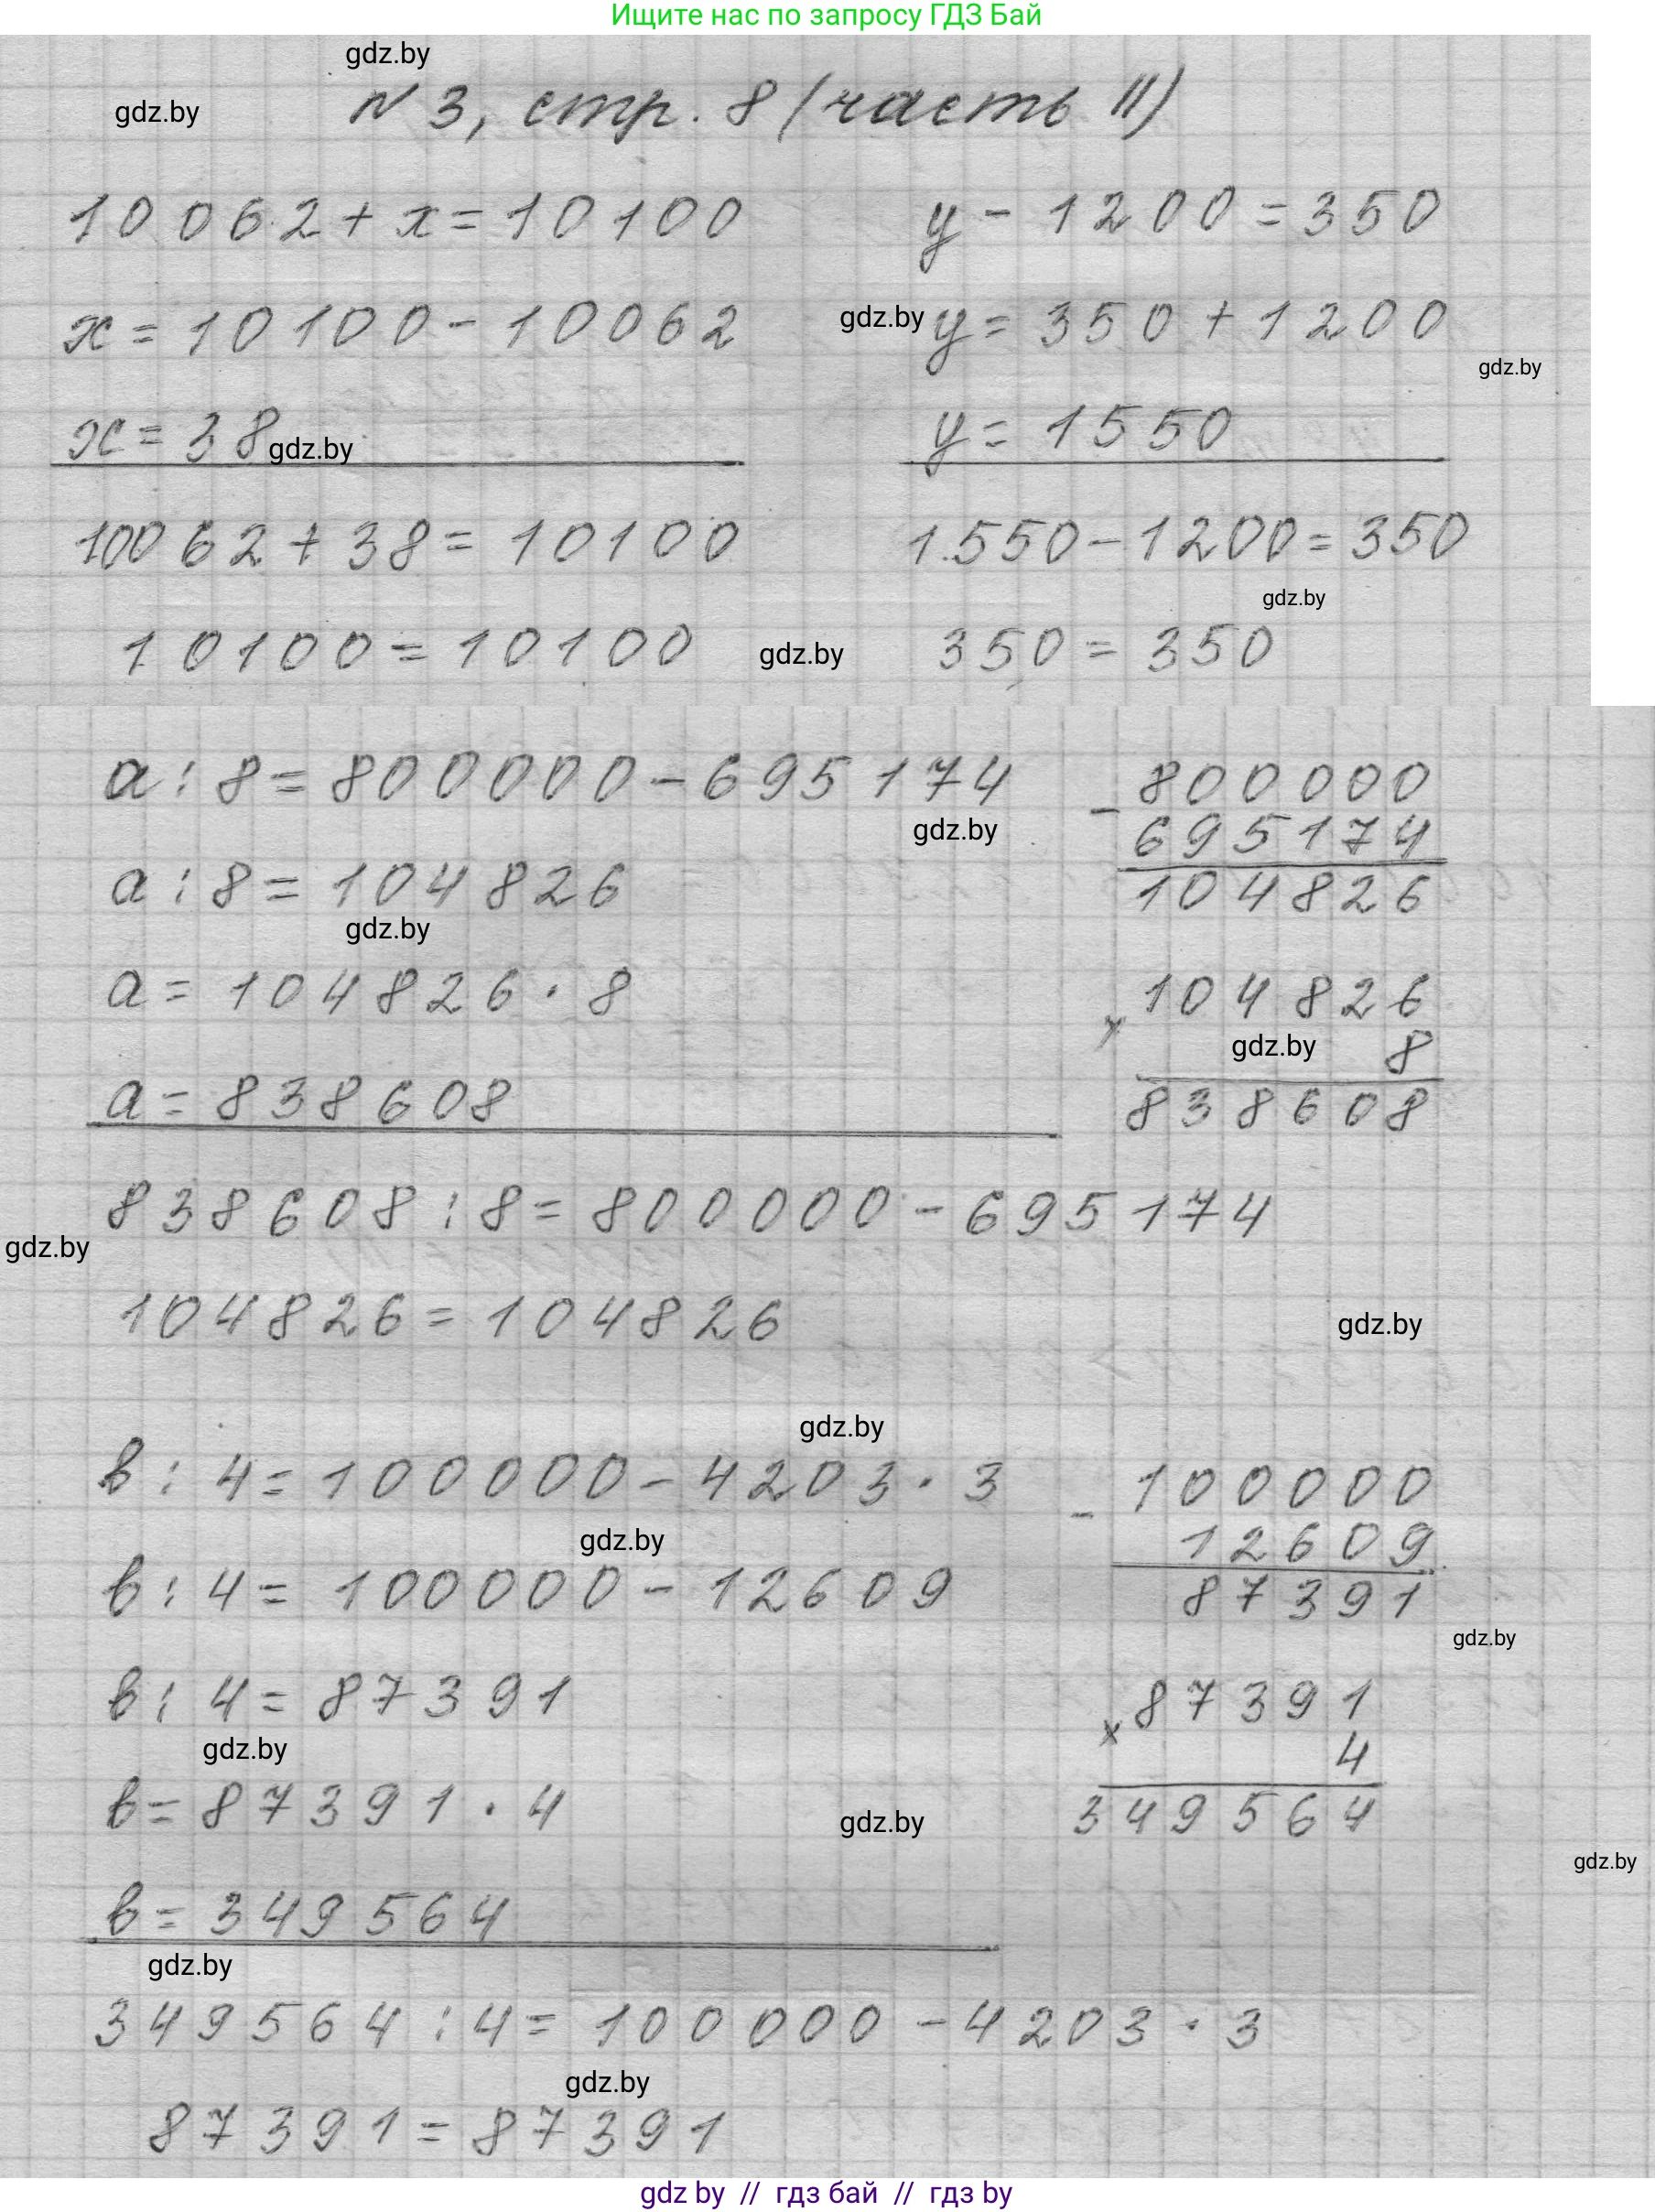 Ищите нас по запросу ГДЗ Бай
gdz.by
gdz.by
N 3, стр. 8 (часть II)
10062 + x = 10100
x = 10100 - 10062
x = 38
gdz.by
10062 + 38 = 10100
10100 = 10100
y - 1200 = 350
gdz.by
y = 350 + 1200
gdz.by
y = 1550
1550 - 1200 = 350
gdz.by
gdz.by
350 = 350
a : 8 = 800000 - 695174
gdz.by
a : 8 = 104826
gdz.by
a = 104826 · 8
a = 838608
- 800000
695174
104826
x 104826
gdz.by
8
838608
838608 : 8 = 800000 - 695174
gdz.by
104826 = 104826
gdz.by
gdz.by
в : 4 = 100000 - 4203 · 3
gdz.by
в : 4 = 100000 - 12609
в : 4 = 87391
gdz.by
в = 87391 · 4
gdz.by
в = 349564
gdz.by
- 100000
12609
87391
gdz.by
x 87391
4
349564
gdz.by
349564 : 4 = 100000 - 4203 · 3
gdz.by
87391 = 87391
gdz by // гдз бай // гдз by